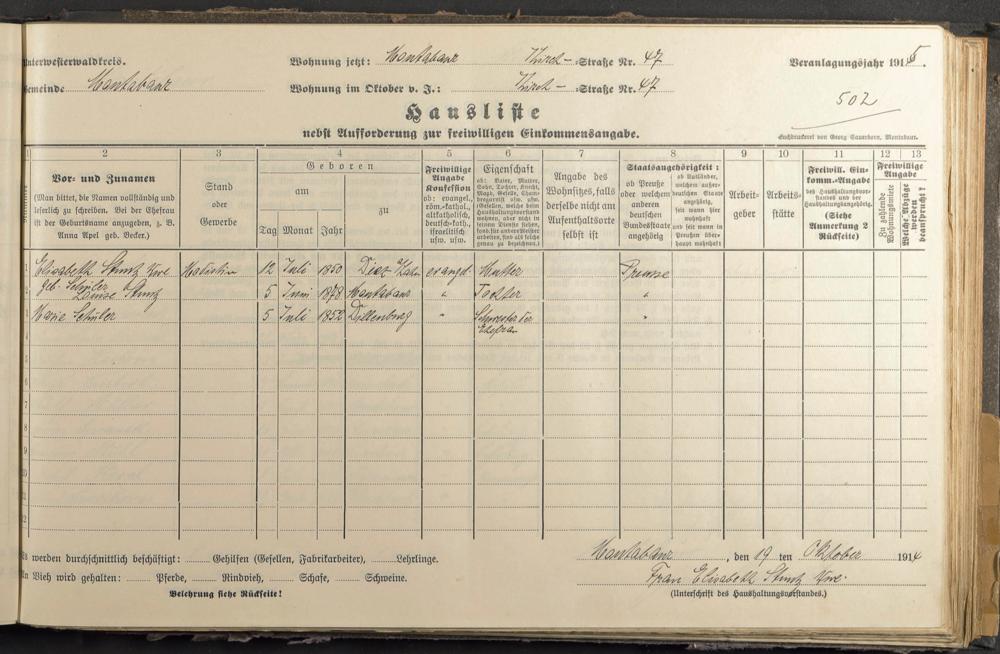 Unterwesterwaldkreis.
Wohnung jetzt: Montabaur Kirch- Straße Nr. 47
Veranlagungsjahr 1915.
Gemeinde Montabaur
Wohnung im Oktober v. J.: Kirch- Straße Nr. 47
502
Hausliste
nebst Aufforderung zur freiwilligen Einkommensangabe.
Buchdruckerei von Georg Sauerborn, Montabaur.
1 2 3 4 5 6 7 8 9 10 11 12 13
Vor- und Zunamen
(Man bittet, die Namen vollständig und
leserlich zu schreiben. Bei der Ehefrau
ist der Geburtsname anzugeben, z. B.
Anna Apel geb. Becker.)
Stand
oder
Gewerbe
Geboren
am
zu
Tag Monat Jahr
Freiwillige
Angabe
Konfession
ob: evangel.,
röm.-kathol.,
altkatholisch,
deutsch-kath.,
israelitisch
usw. usw.
Eigenschaft
ob: Vater, Mutter,
Sohn, Tochter, Knecht,
Magd, Geselle, Cham-
bregarnist usw. usw.
(Gesellen, welche beim
Haushaltungsvorstand
wohnen, aber nicht in
seinem Dienste stehen,
sond. für andere Meister
arbeiten, sind als solche
genau zu bezeichnen.)
Angabe des
Wohnsitzes, falls
derselbe nicht am
Aufenthaltsorte
selbst ist
Staatsangehörigkeit:
ob Preuße
oder welchem
anderen
deutschen
Bundesstaate
angehörig
ob Ausländer,
welchem außer-
deutschen Staate
angehörig,
seit wann hier
wohnhaft
und seit wann in
Preußen über-
haupt wohnhaft
Arbeit-
geber
Arbeits-
stätte
Freiwill. Ein-
komm.-Angabe
des Haushaltungsvor-
standes und der
Haushaltungsangehörig.
(Siehe
Anmerkung 2
Rückseite)
Freiwillige
Angabe
Zu zahlende
Wohnungsmiete
Welche Abzüge
werden
beansprucht?
Elisabeth Stuntz Wwe 12 Juli 1850 Diez a/Lahn evangl. Mutter Preusse
geb. Schüler
Louise Stuntz 5 Juni 1878 Montabaur " Tochter "
Marie Schüler 5 Juli 1852 Dillenburg " Schwester der "
Ehefrau
Es werden durchschnittlich beschäftigt: Gehilfen (Gesellen, Fabrikarbeiter), Lehrlinge.
Montabaur, den 19 ten Oktober 1914
An Vieh wird gehalten: Pferde, Rindvieh, Schafe, Schweine.
Frau Elisabeth Stuntz Wwe.
Belehrung siehe Rückseite!
(Unterschrift des Haushaltungsvorstandes.)